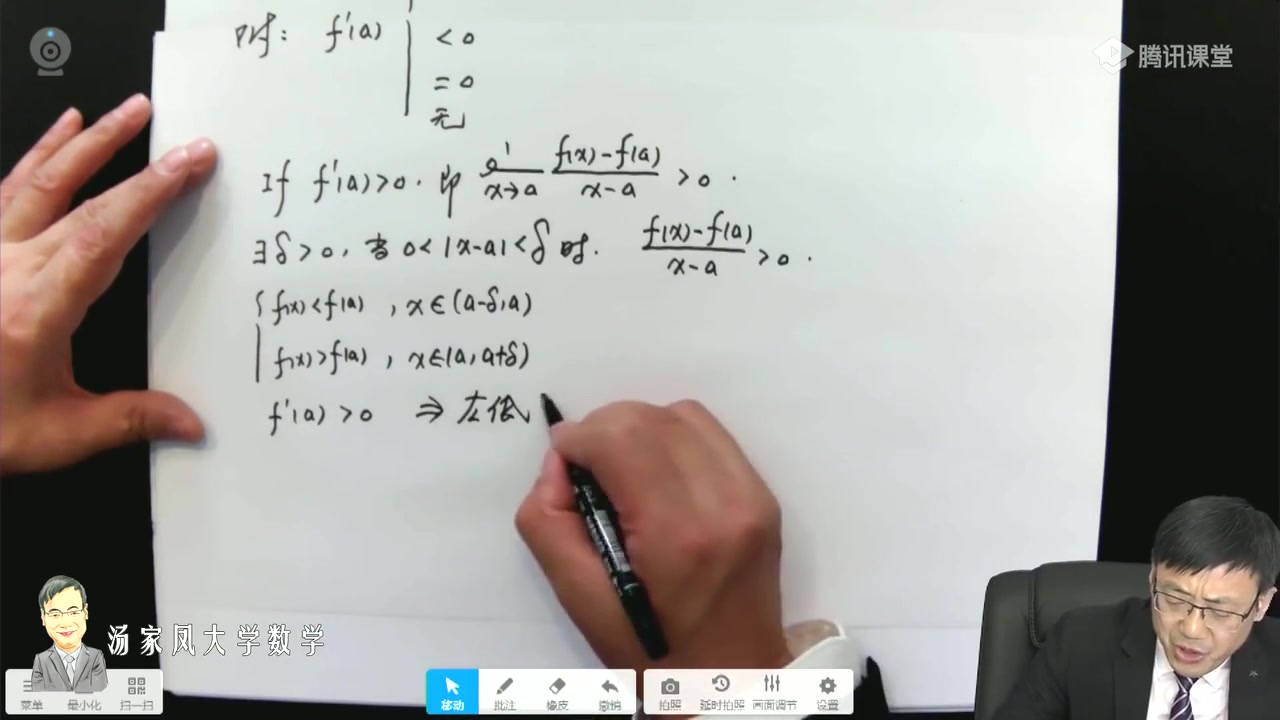 腾讯课堂
附: f'(a) | < 0
= 0
无
If f'(a)>0. 即 lim x→a (f(x)-f(a))/(x-a) > 0.
∃δ>0, 当 0<|x-a|<δ 时. (f(x)-f(a))/(x-a) > 0.
{ f(x)<f(a), x∈(a-δ,a)
f(x)>f(a), x∈(a,a+δ)
f'(a)>0 ⇒ 左低
汤家凤大学数学
菜单 最小化 扫一扫 移动 批注 橡皮 撤销 拍照 延时拍照 画面调节 设置